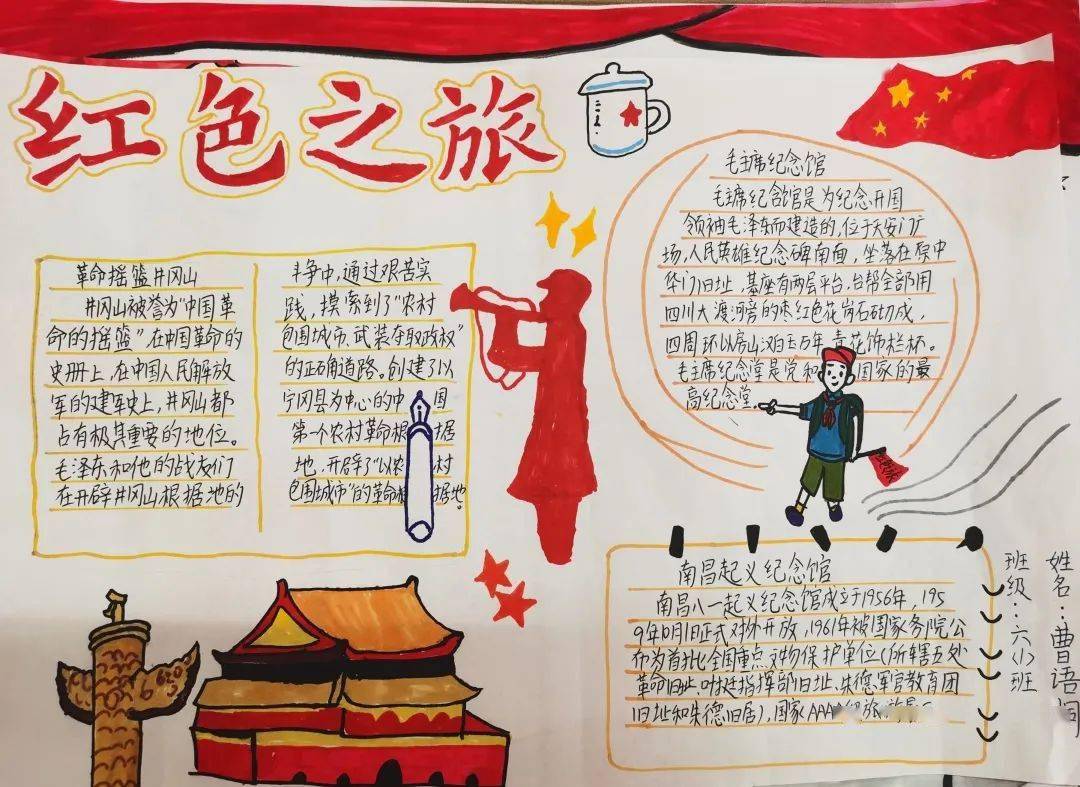 红色之旅
革命摇篮井冈山
井冈山被誉为"中国革
命的摇篮"在中国革命的
史册上,在中国人民解放
军的建军史上,井冈山都
占有极其重要的地位。
毛泽东和他的战友们
在开辟井冈山根据地的
斗争中,通过艰苦实
践,摸索到了"农村
包围城市、武装夺取政权"
的正确道路。创建了以
宁冈县为中心的中 国
第一个农村革命根 据
地,开辟了"以农 村
包围城市"的革命根 据地。
毛主席纪念馆
毛主席纪念馆是为纪念开国
领袖毛泽东而建造的,位于天安门广
场,人民英雄纪念碑南面,坐落在原中
华门旧址,基座有两层平台,台帮全部用
四川大渡河旁的枣红色花岗石砌成,
四周环以房山汉白玉万年青花饰栏杯。
毛主席纪念堂是党和 国家的最
高纪念堂。
南昌起义纪念馆
南昌八一起义纪念馆成立于1956年,195
9年10月1日正式对外开放,1961年被国家务院公
布为首批全国重点文物保护单位(所辖五处
革命旧址,叶挺指挥部旧址,朱德军官教育团
旧址和朱德旧居),国家AAA
姓名:曹语
班级:六(1)班